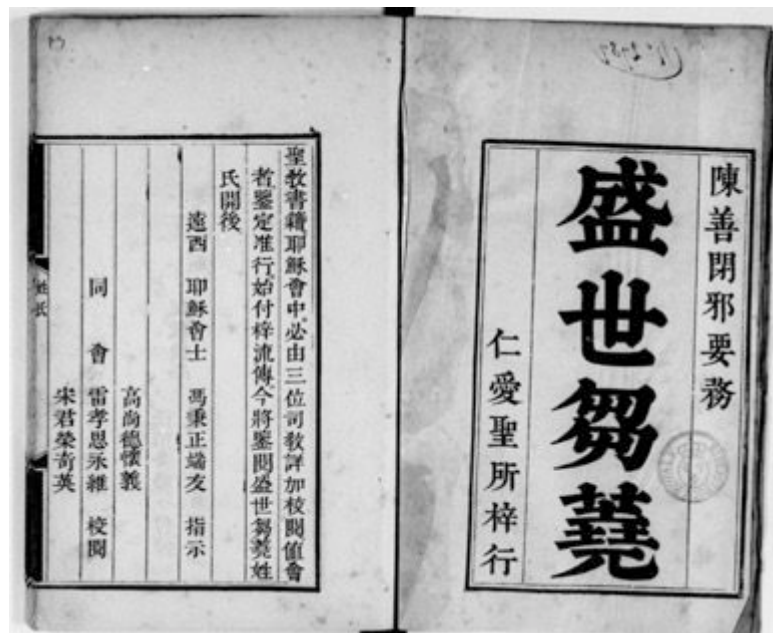 陳善閉邪要務
盛世芻蕘
仁愛聖所梓行
聖教書籍耶穌會中必由三位司教詳加校閱值會
者鑒定准行始付梓流傳今將鑒閱盛世芻蕘姓
氏開後
遠西 耶穌會士 馮秉正端友 指示
高尚德懷義
同 會 雷孝思永維 校閱
宋君榮奇英
姓氏